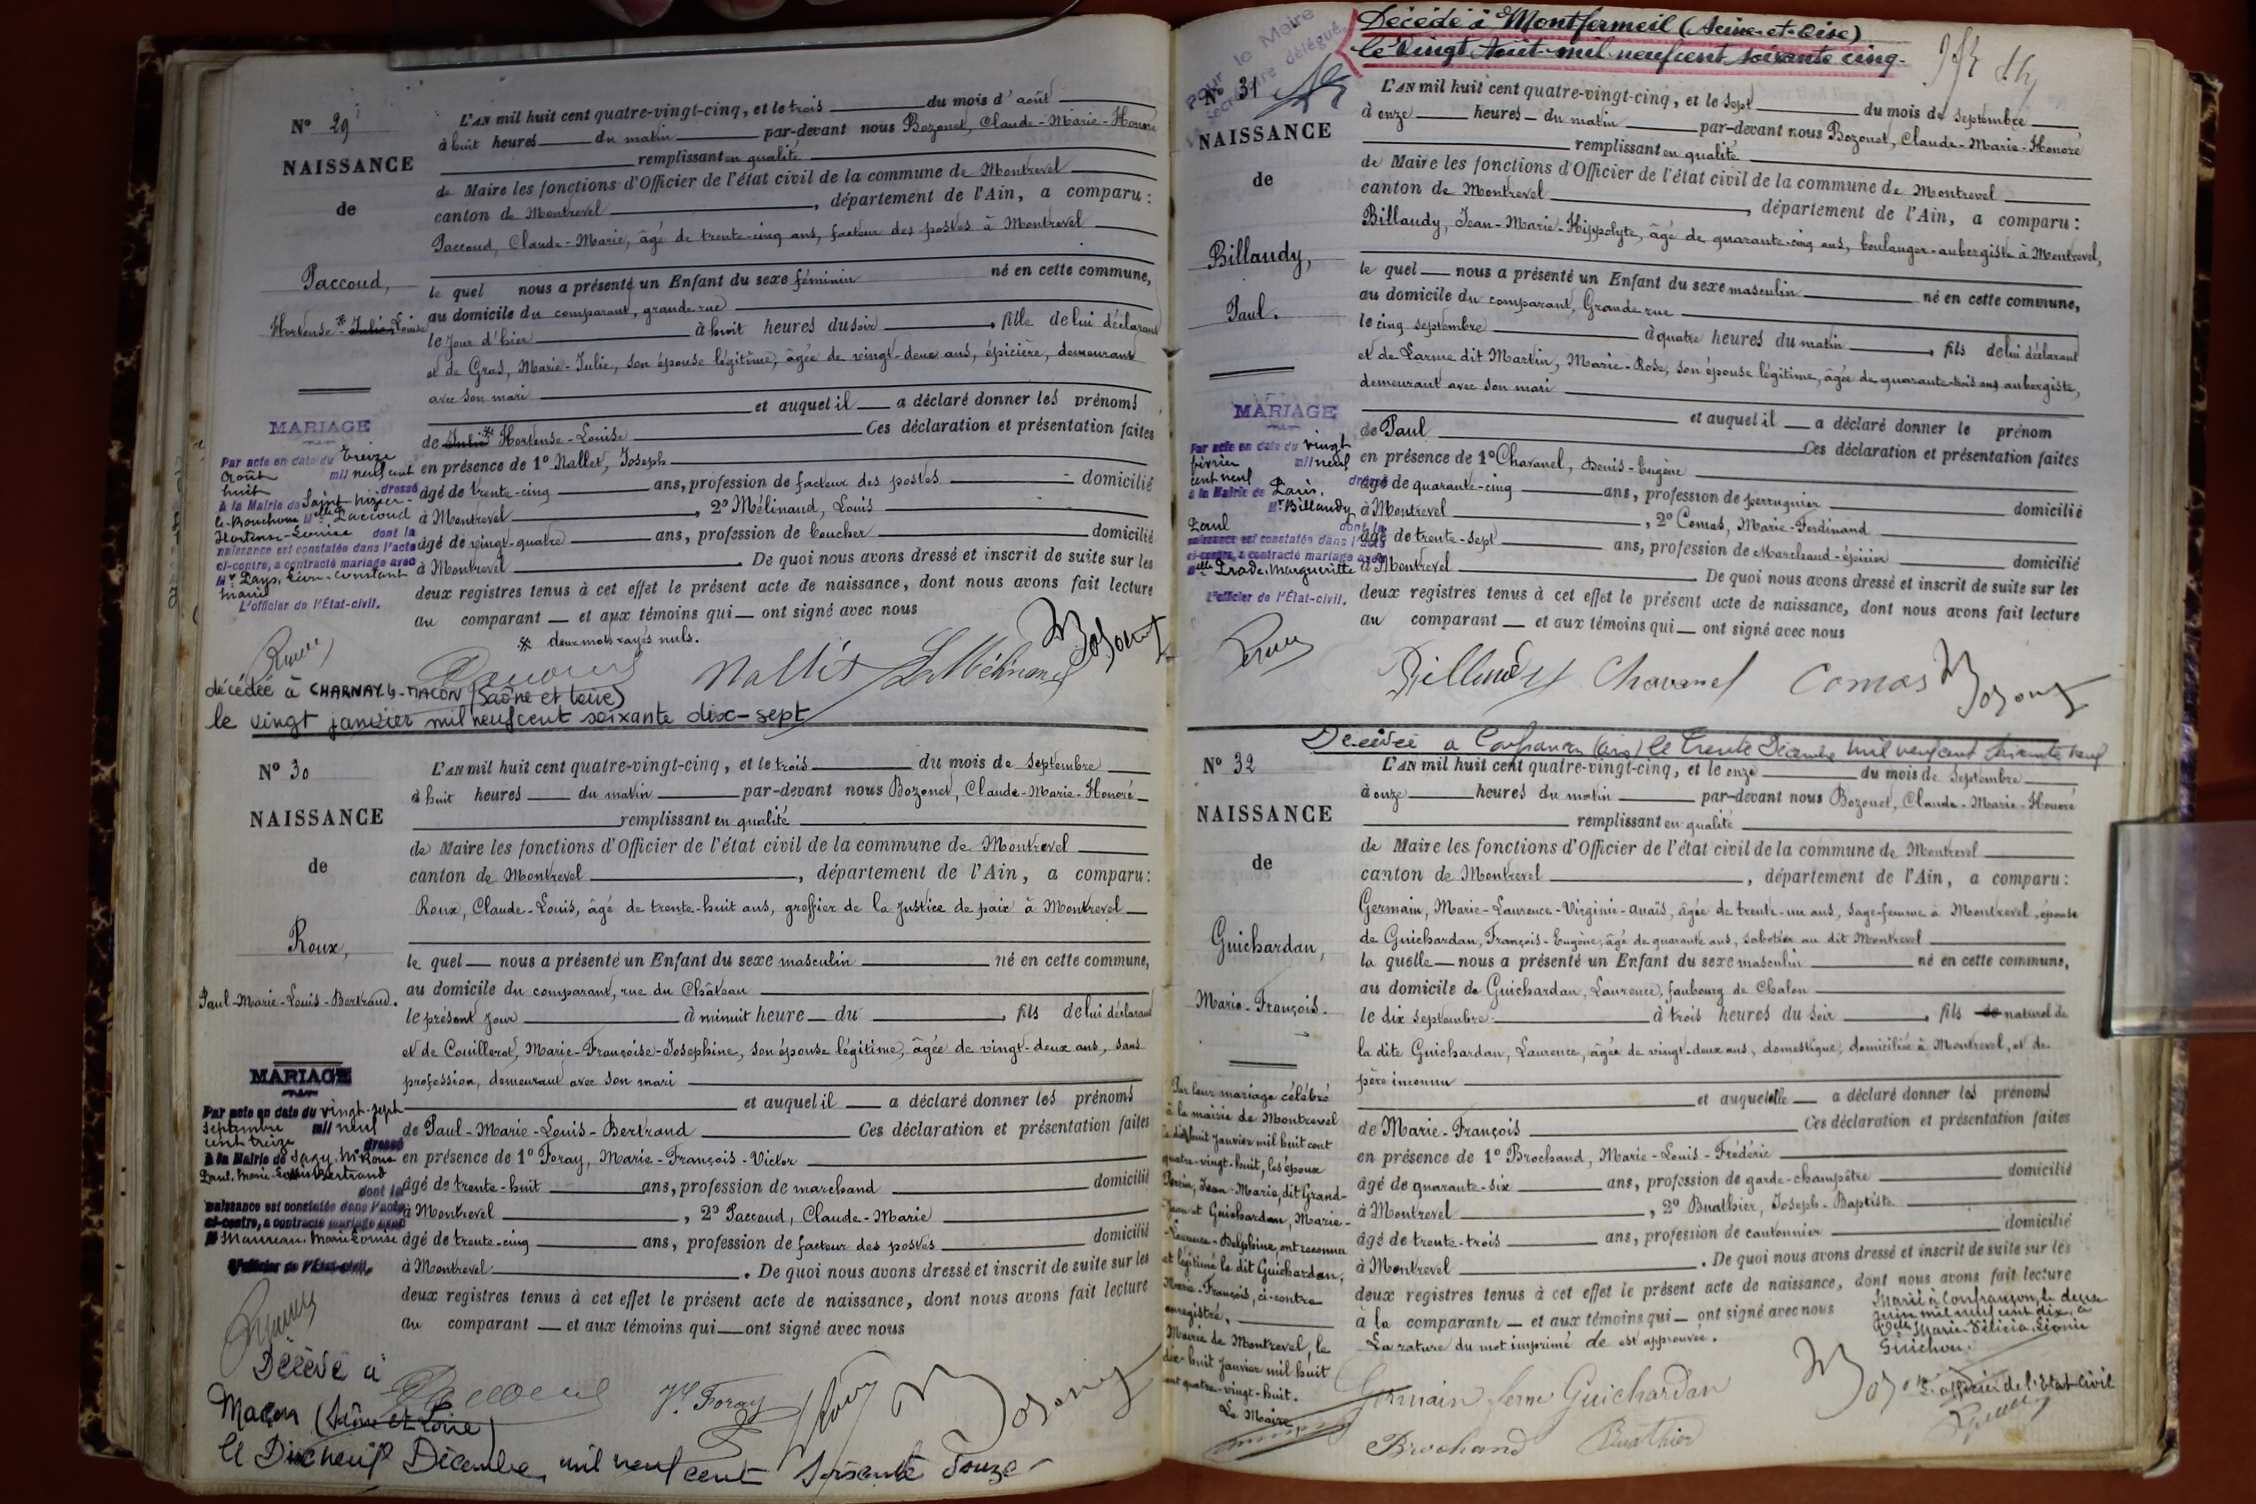 N° 29
NAISSANCE
de
Paccoud,
Hortense-※ Julie, Louise
MARIAGE
Par acte en date du treize
août mil neuf cent
huit dressé
à la Mairie de Saint-Nizier-
le-Bouchoux Mlle Paccoud
Hortense-Louise dont la
naissance est constatée dans l'acte
ci-contre, a contracté mariage avec
Mr Pays, Léon-Constant
Marie
L'officier de l'État-civil.
L'AN mil huit cent quatre-vingt-cinq, et le trois du mois d'août
à huit heures du matin par-devant nous Bozonet, Claude-Marie-Honoré
remplissant en qualité
de Maire les fonctions d'Officier de l'état civil de la commune de Montrevel
canton de Montrevel, département de l'Ain, a comparu:
Paccoud, Claude-Marie, âgé de trente-cinq ans, facteur des postes à Montrevel
le quel nous a présenté un Enfant du sexe féminin né en cette commune,
au domicile du comparant, grande rue
le jour d'hier à huit heures du soir, fille de lui déclarant
et de Gras, Marie-Julie, son épouse légitime, âgée de vingt-deux ans, épicière, demeurant
avec son mari
et auquel il a déclaré donner les prénoms
de Julie ※ Hortense-Louise Ces déclaration et présentation faites
en présence de 1° Nallet, Joseph
âgé de trente-cinq ans, profession de facteur des postes domicilié
à Montrevel, 2° Mélinand, Louis
âgé de vingt-quatre ans, profession de boucher domicilié
à Montrevel. De quoi nous avons dressé et inscrit de suite sur les
deux registres tenus à cet effet le présent acte de naissance, dont nous avons fait lecture
au comparant et aux témoins qui ont signé avec nous
※ deux mots rayés nuls.
Paccoud Nallet L. Mélinand Bozonet
décédée à CHARNAY-L-MACON (Saône et Loire)
le vingt janvier mil neuf cent soixante dix-sept
N° 30
NAISSANCE
de
Roux,
Paul-Marie-Louis-Bertrand.
MARIAGE
Par acte en date du vingt-sept
septembre mil neuf
cent treize dressé
à la Mairie de Sagy, Mr Roux
Paul-Marie-Louis Bertrand
dont la
naissance est constatée dans l'acte
ci-contre, a contracté mariage avec
Marie-Louise
L'officier de l'État-civil.
L'AN mil huit cent quatre-vingt-cinq, et le trois du mois de septembre
à huit heures du matin par-devant nous Bozonet, Claude-Marie-Honoré
remplissant en qualité
de Maire les fonctions d'Officier de l'état civil de la commune de Montrevel
canton de Montrevel, département de l'Ain, a comparu:
Roux, Claude-Louis, âgé de trente-huit ans, greffier de la justice de paix à Montrevel
le quel nous a présenté un Enfant du sexe masculin né en cette commune,
au domicile du comparant, rue du Château
le présent jour à minuit heure du, fils de lui déclarant
et de Couillerot, Marie-Françoise-Josephine, son épouse légitime, âgée de vingt-deux ans, sans
profession, demeurant avec son mari
et auquel il a déclaré donner les prénoms
de Paul-Marie-Louis-Bertrand Ces déclaration et présentation faites
en présence de 1° Foray, Marie-François-Victor
âgé de trente-huit ans, profession de marchand domicilié
à Montrevel, 2° Paccoud, Claude-Marie
âgé de trente-cinq ans, profession de facteur des postes domicilié
à Montrevel. De quoi nous avons dressé et inscrit de suite sur les
deux registres tenus à cet effet le présent acte de naissance, dont nous avons fait lecture
au comparant et aux témoins qui ont signé avec nous
Paccoud Vr Foray Roux Bozonet
Décédé à
Macon (Saône et Loire)
le Dix neuf Décembre mil neuf cent soixante douze
Décédé à Montfermeil (Seine-et-Oise)
le Vingt Août mil neuf cent soixante cinq.
Pour le Maire
Secrétaire délégué,
N° 31
NAISSANCE
de
Billaudy,
Paul.
MARIAGE
Par acte en date du vingt
février mil neuf
cent neuf dressé
à la Mairie de Paris,
Mr Billaudy
Paul dont la
naissance est constatée dans l'acte
ci-contre, a contracté mariage avec
Mlle Prade, Marguerite
L'officier de l'État-civil.
L'AN mil huit cent quatre-vingt-cinq, et le sept du mois de septembre
à onze heures du matin par-devant nous Bozonet, Claude-Marie-Honoré
remplissant en qualité
de Maire les fonctions d'Officier de l'état civil de la commune de Montrevel
canton de Montrevel, département de l'Ain, a comparu:
Billaudy, Jean-Marie-Hippolyte, âgé de quarante-cinq ans, boulanger-aubergiste à Montrevel,
le quel nous a présenté un Enfant du sexe masculin né en cette commune,
au domicile du comparant, Grande rue
le cinq septembre à quatre heures du matin, fils de lui déclarant
et de Larme dit Martin, Marie-Rose, son épouse légitime, âgée de quarante-trois ans aubergiste,
demeurant avec son mari
et auquel il a déclaré donner le prénom
de Paul Ces déclaration et présentation faites
en présence de 1° Chavanel, Denis-Eugène
âgé de quarante-cinq ans, profession de perruquier domicilié
à Montrevel, 2° Comas, Marie-Ferdinand
âgé de trente-sept ans, profession de Marchand-épicier domicilié
à Montrevel. De quoi nous avons dressé et inscrit de suite sur les
deux registres tenus à cet effet le présent acte de naissance, dont nous avons fait lecture
au comparant et aux témoins qui ont signé avec nous
Billaudy Chavanel Comas Bozonet
Décédé à Confrançon (Ain) le trente Décembre mil neuf cent soixante neuf
N° 32
NAISSANCE
de
Guichardan,
Marie-François.
Par leur mariage célébré
à la mairie de Montrevel
le dix-huit janvier mil huit cent
quatre-vingt-huit, les époux
Perrin, Jean-Marie, dit Grand-
Jean et Guichardan, Marie-
Laurence-Delphine, ont reconnu
et légitimé le dit Guichardan,
Marie-François, ci-contre
enregistré.
Mairie de Montrevel, le
dix-huit janvier mil huit
cent quatre-vingt-huit.
Le Maire
L'AN mil huit cent quatre-vingt-cinq, et le onze du mois de septembre
à onze heures du matin par-devant nous Bozonet, Claude-Marie-Honoré
remplissant en qualité
de Maire les fonctions d'Officier de l'état civil de la commune de Montrevel
canton de Montrevel, département de l'Ain, a comparu:
Germain, Marie-Laurence-Virginie-Anaïs, âgée de trente-un ans, sage-femme à Montrevel, épouse
de Guichardan, François-Eugène, âgé de quarante ans, sabotier au dit Montrevel
la quelle nous a présenté un Enfant du sexe masculin né en cette commune,
au domicile de Guichardan, Laurence, faubourg de Chalon
le dix septembre à trois heures du soir, fils de naturel de
la dite Guichardan, Laurence, âgée de vingt-deux ans, domestique, domiciliée à Montrevel, et de
père inconnu
et auquel elle a déclaré donner les prénoms
de Marie-François Ces déclaration et présentation faites
en présence de 1° Brochand, Marie-Louis-Frédéric
âgé de quarante-six ans, profession de garde-champêtre domicilié
à Montrevel, 2° Buathier, Joseph-Baptiste
âgé de trente-trois ans, profession de cantonnier domicilié
à Montrevel. De quoi nous avons dressé et inscrit de suite sur les
deux registres tenus à cet effet le présent acte de naissance, dont nous avons fait lecture
à la comparante et aux témoins qui ont signé avec nous
La rature du mot imprimé de est approuvée.
Marié à Confrançon, le deux
juin mil neuf cent dix, à
Dlle Marie-Félicie-Léonie
Guichon.
L'officier de l'Etat civil
Germain feme Guichardan Bozonet
Brochand Buathier